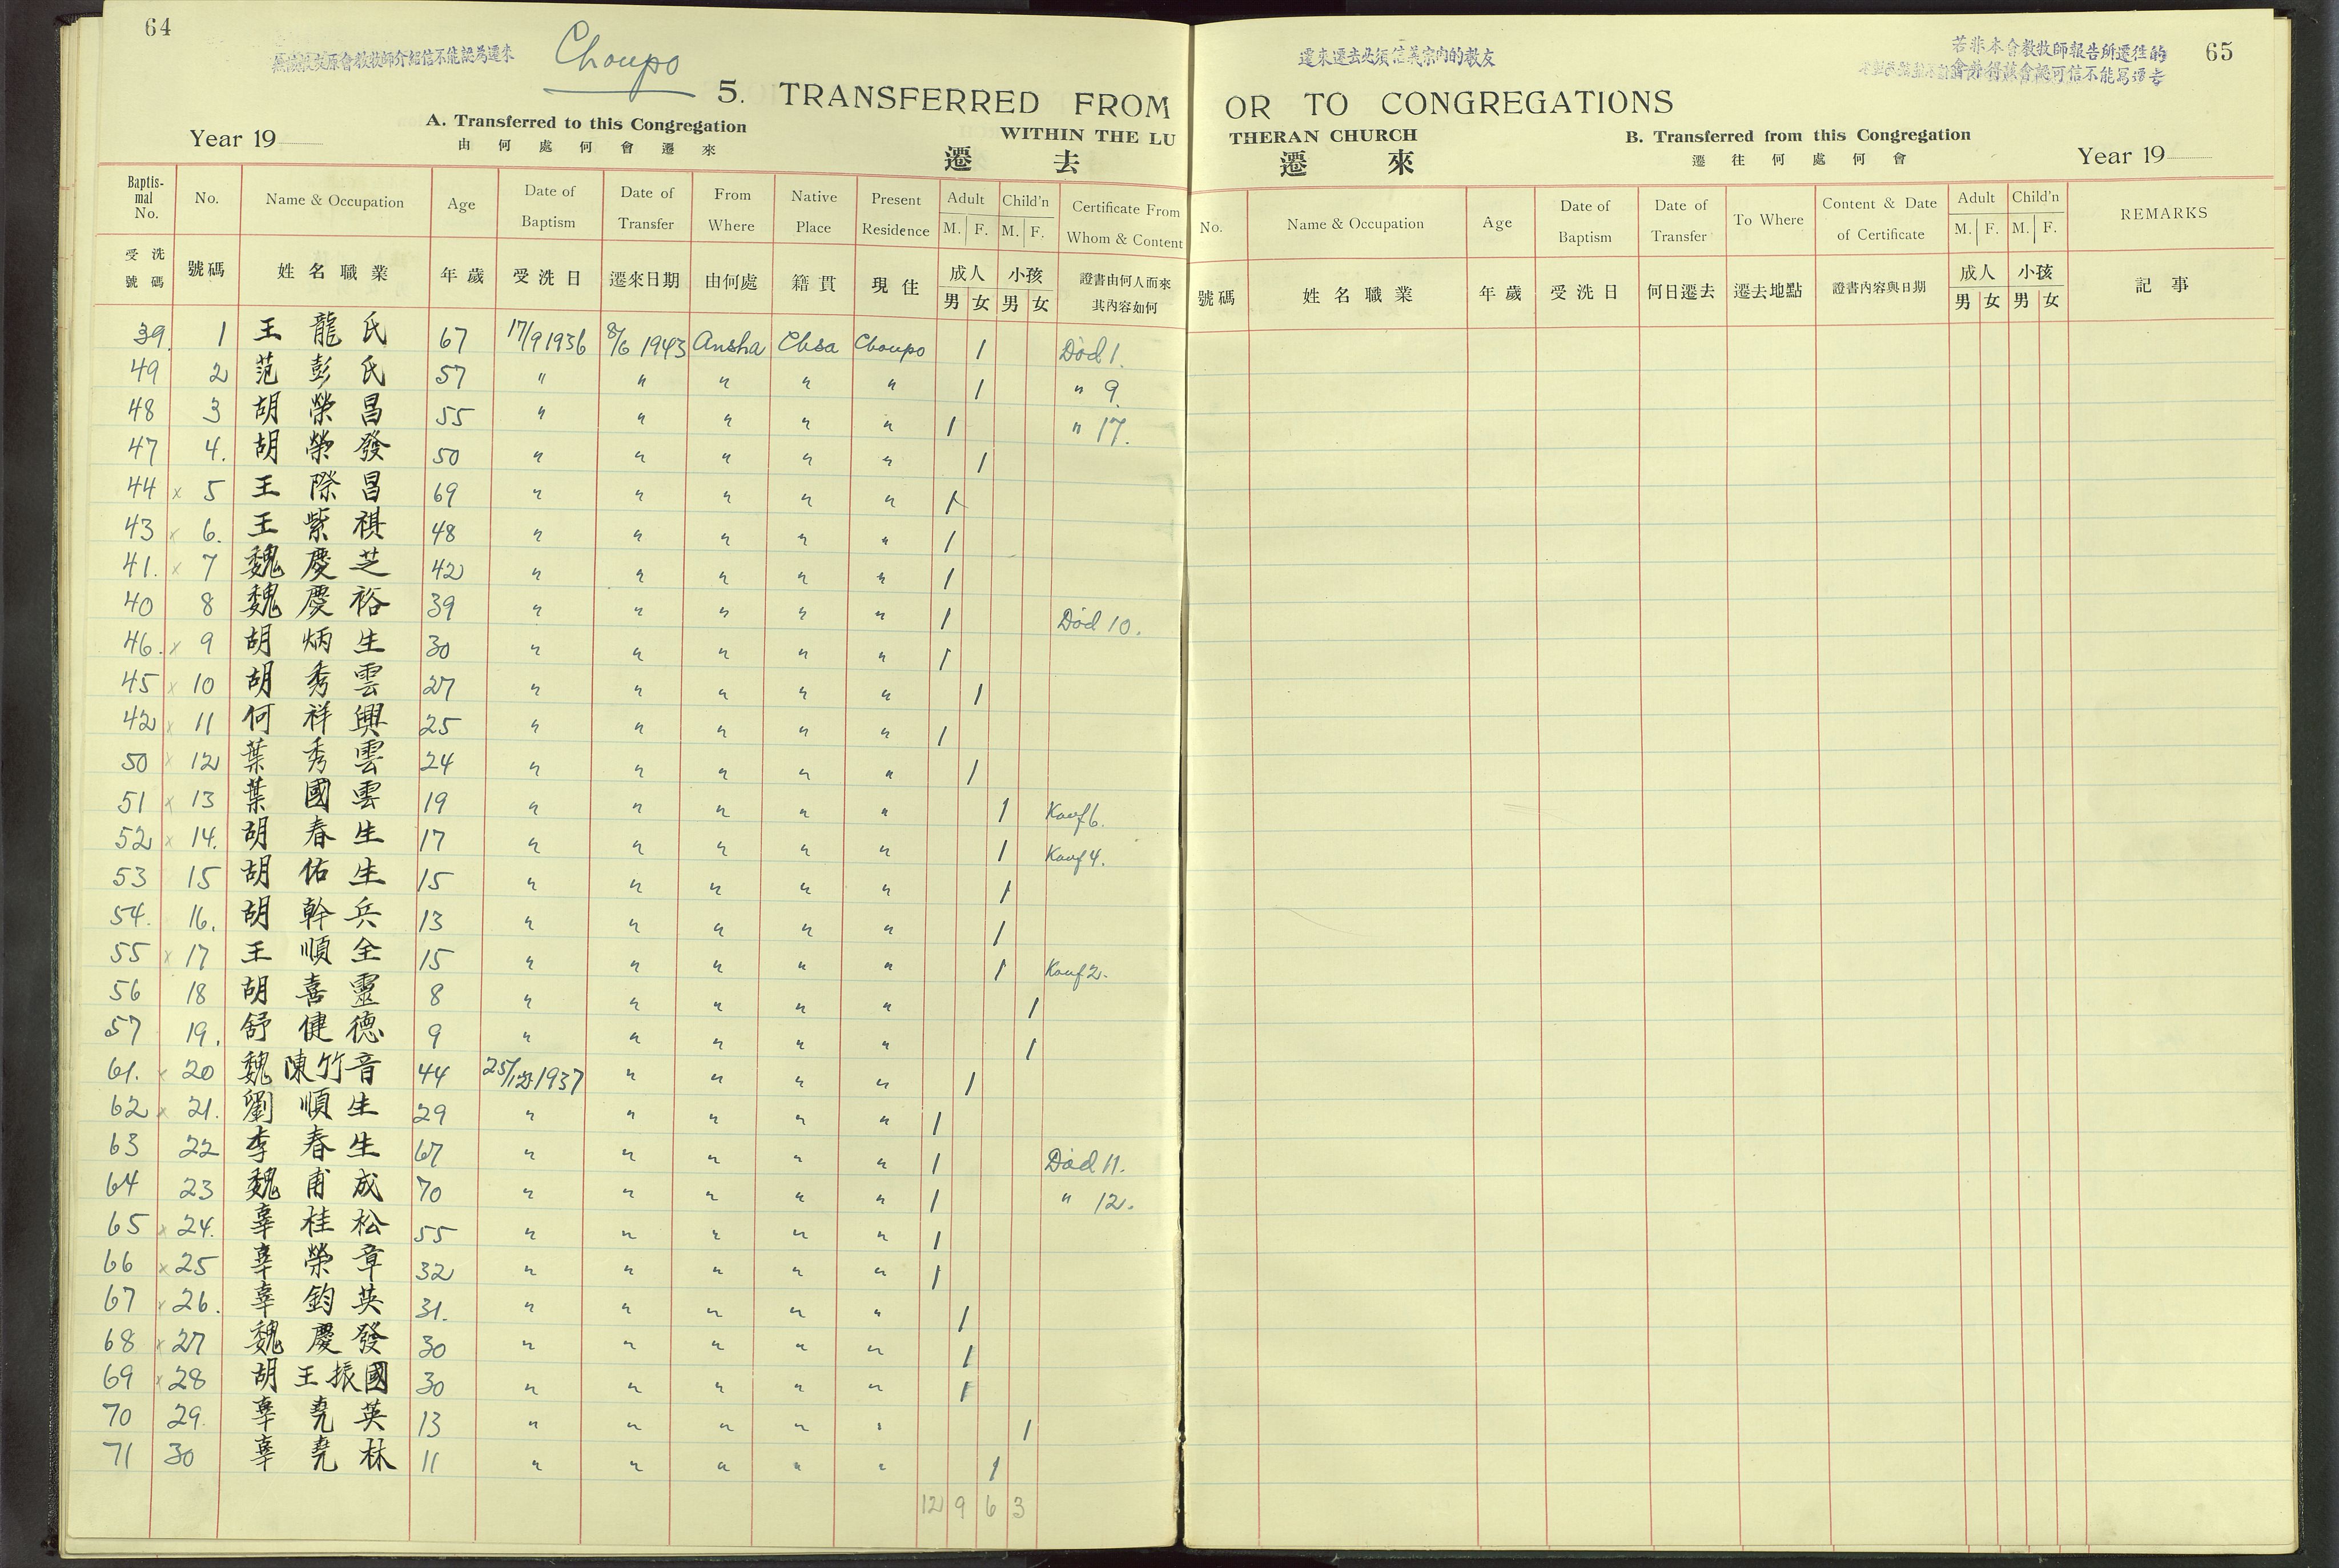 64
無該教友原會教牧師介紹信不能認為遷來
Choupo
5. TRANSFERRED FROM
A. Transferred to this Congregation
WITHIN THE LU
Year 19
由何處何會遷來
遷去
Baptis-mal No. No. Name & Occupation Age Date of Baptism Date of Transfer From Where Native Place Present Residence Adult M. F. Child'n M. F. Certificate From Whom & Content
受洗號碼 號碼 姓名職業 年歲 受洗日 遷來日期 由何處 籍貫 現住 成人 男 女 小孩 男 女 證書由何人而來其內容如何
39. 1 王龍氏 67 17/9 1936 8/6 1943 Ansha Chsa Choupo 1 Död 1.
49 2 范彭氏 57 " " " " " 1 " 9.
48 3 胡榮昌 55 " " " " " 1 " 17.
47 4. 胡榮發 50 " " " " " 1
44 x 5 王際昌 69 " " " " " 1
43 x 6. 王紫祺 48 " " " " " 1
41. x 7 魏慶芝 42 " " " " " 1
40 8 魏慶裕 39 " " " " " 1 Död 10.
46. x 9 胡炳生 30 " " " " " 1
45 x 10 胡秀雲 27 " " " " " 1
42 x 11 何祥興 25 " " " " " 1
50 x 12 葉秀雲 24 " " " " " 1
51 x 13 葉國雲 19 " " " " " 1 Konf 6.
52 x 14. 胡春生 17 " " " " " 1 Konf 4.
53 15 胡佑生 15 " " " " " 1
54. 16. 胡幹兵 13 " " " " " 1
55 x 17 王順全 15 " " " " " 1 Konf 2.
56 18 胡喜靈 8 " " " " " 1
57 19. 舒健德 9 " " " " " 1
61. x 20 魏陳竹音 44 25/12 1937 " " " " 1
62 x 21. 劉順生 29 " " " " " 1
63 22 李春生 67 " " " " " 1 Död 11.
64 23 魏甫成 70 " " " " " 1 " 12.
65 x 24. 辜桂松 55 " " " " " 1
66 x 25 辜榮章 32 " " " " " 1
67 x 26. 辜鈞英 31. " " " " " 1
68 x 27 魏慶發 30 " " " " " 1
69 x 28 胡王振國 30 " " " " " 1
70 29. 辜堯英 13 " " " " " 1
71 30 辜堯林 11 " " " " " 1
12 9 6 3
遷來遷去必須信義宗內的教友
若非本會教牧師報告所遷往的
會並得該會認可信不能寫遷去
65
OR TO CONGREGATIONS
THERAN CHURCH
B. Transferred from this Congregation
遷來
遷往何處何會
Year 19
No. Name & Occupation Age Date of Baptism Date of Transfer To Where Content & Date of Certificate Adult M. F. Child'n M. F. REMARKS
號碼 姓名職業 年歲 受洗日 何日遷去 遷去地點 證書內容與日期 成人 男 女 小孩 男 女 記事